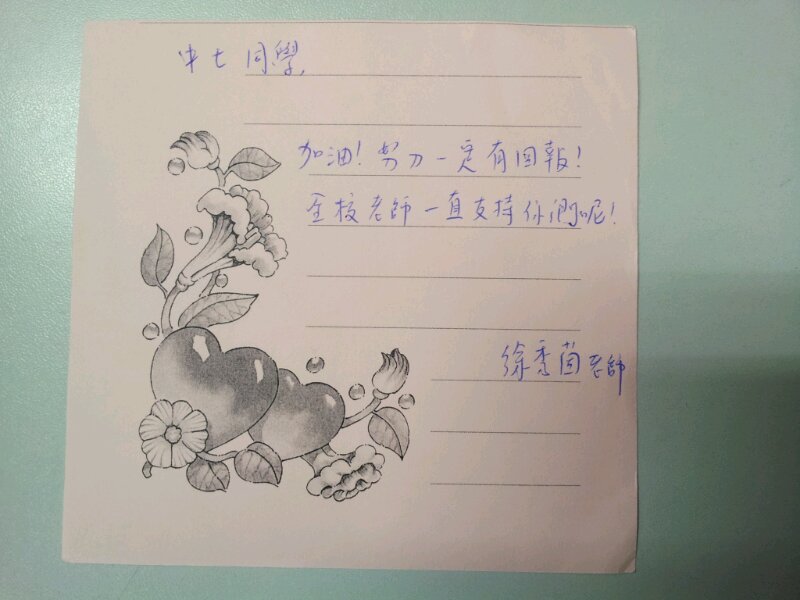 中七同學,
加油!努力一定有回報!
全校老師一直支持你們呢!
徐秀茵老師